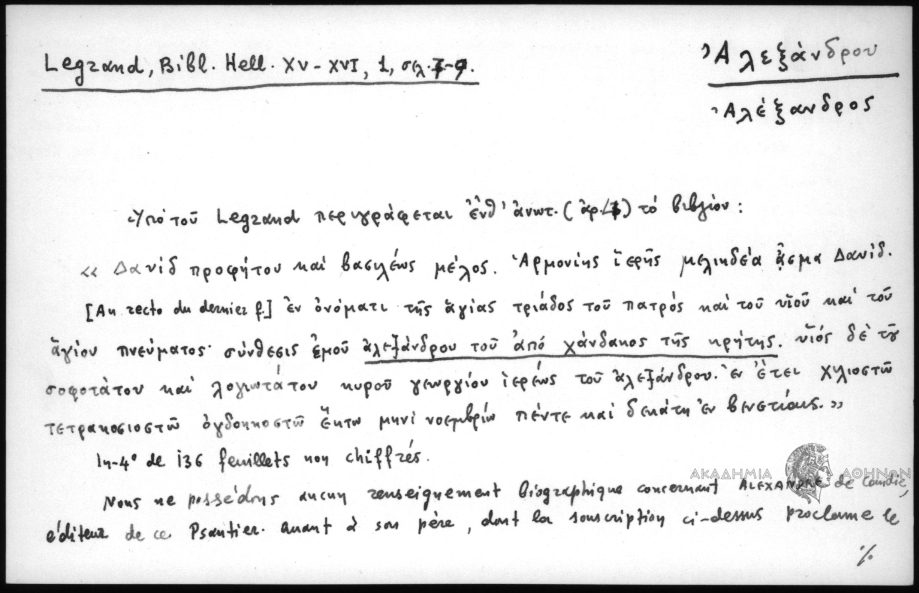 Legrand, Bibl. Hell. XV-XVI, 1, σελ. 7-9.
Ἀλεξάνδρου
Ἀλέξανδρος
Ὑπὸ τοῦ Legrand περιγράφεται ἔνθ' ἀνωτ. (ἀρ. ) τὸ βιβλίον:
« Δαυΐδ προφήτου καὶ βασιλέως μέλος. Ἁρμονίης ἱερῆς μελιηδέα ᾆσμα Δαυΐδ.
[Au recto du dernier f.] ἐν ὀνόματι τῆς ἁγίας τριάδος τοῦ πατρός καὶ τοῦ υἱοῦ καὶ τοῦ
ἁγίου πνεύματος· σύνθεσις ἐμοῦ ἀλεξάνδρου τοῦ ἀπό χάνδακος τῆς κρήτης. υἱός δὲ τοῦ
σοφοτάτου καὶ λογιωτάτου κυροῦ γεωργίου ἱερέως τοῦ ἀλεξάνδρου. ἐν ἔτει χιλιοστῶ
τετρακοσιοστῶ ὀγδοηκοστῶ ἕκτω μηνί νοεμβρίω πέντε καὶ δεκάτη ἐν βενετίαις.»
In-4° de 136 feuillets non chiffrés.
ΑΚΑΔΗΜΙΑ ΑΘΗΝΩΝ
Nous ne possédons aucun renseignement biographique concernant ALEXANDRE de Candie,
éditeur de ce Psautier. Quant à son père, dont la souscription ci-dessus proclame le
%